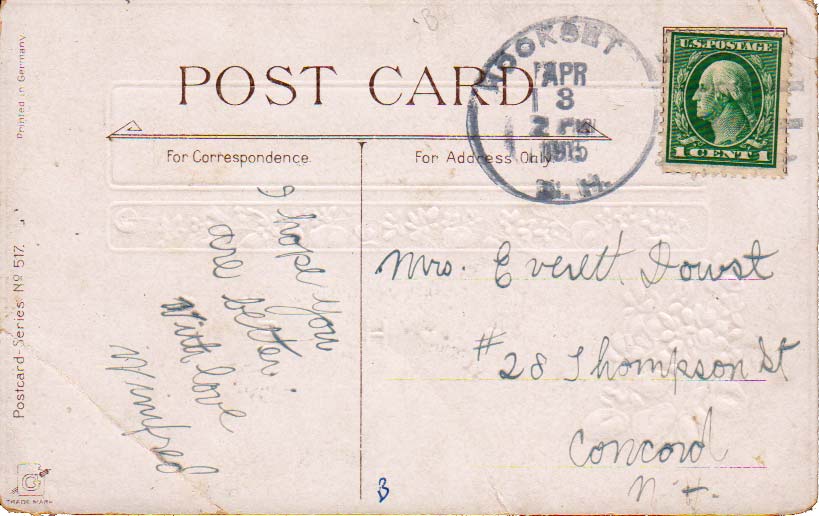 POST CARD
For Correspondence.
For Address Only.
HOOKSETT
APR
3
2 PM
1915
N.H.
U.S.POSTAGE
1 CENT 1
Printed in Germany
Postcard-Series No 517.
I hope you
are better.
With love
Winifred
Mrs. Everett Dowst
#28 Thompson St
Concord
N.H.
B
B
TRADE MARK